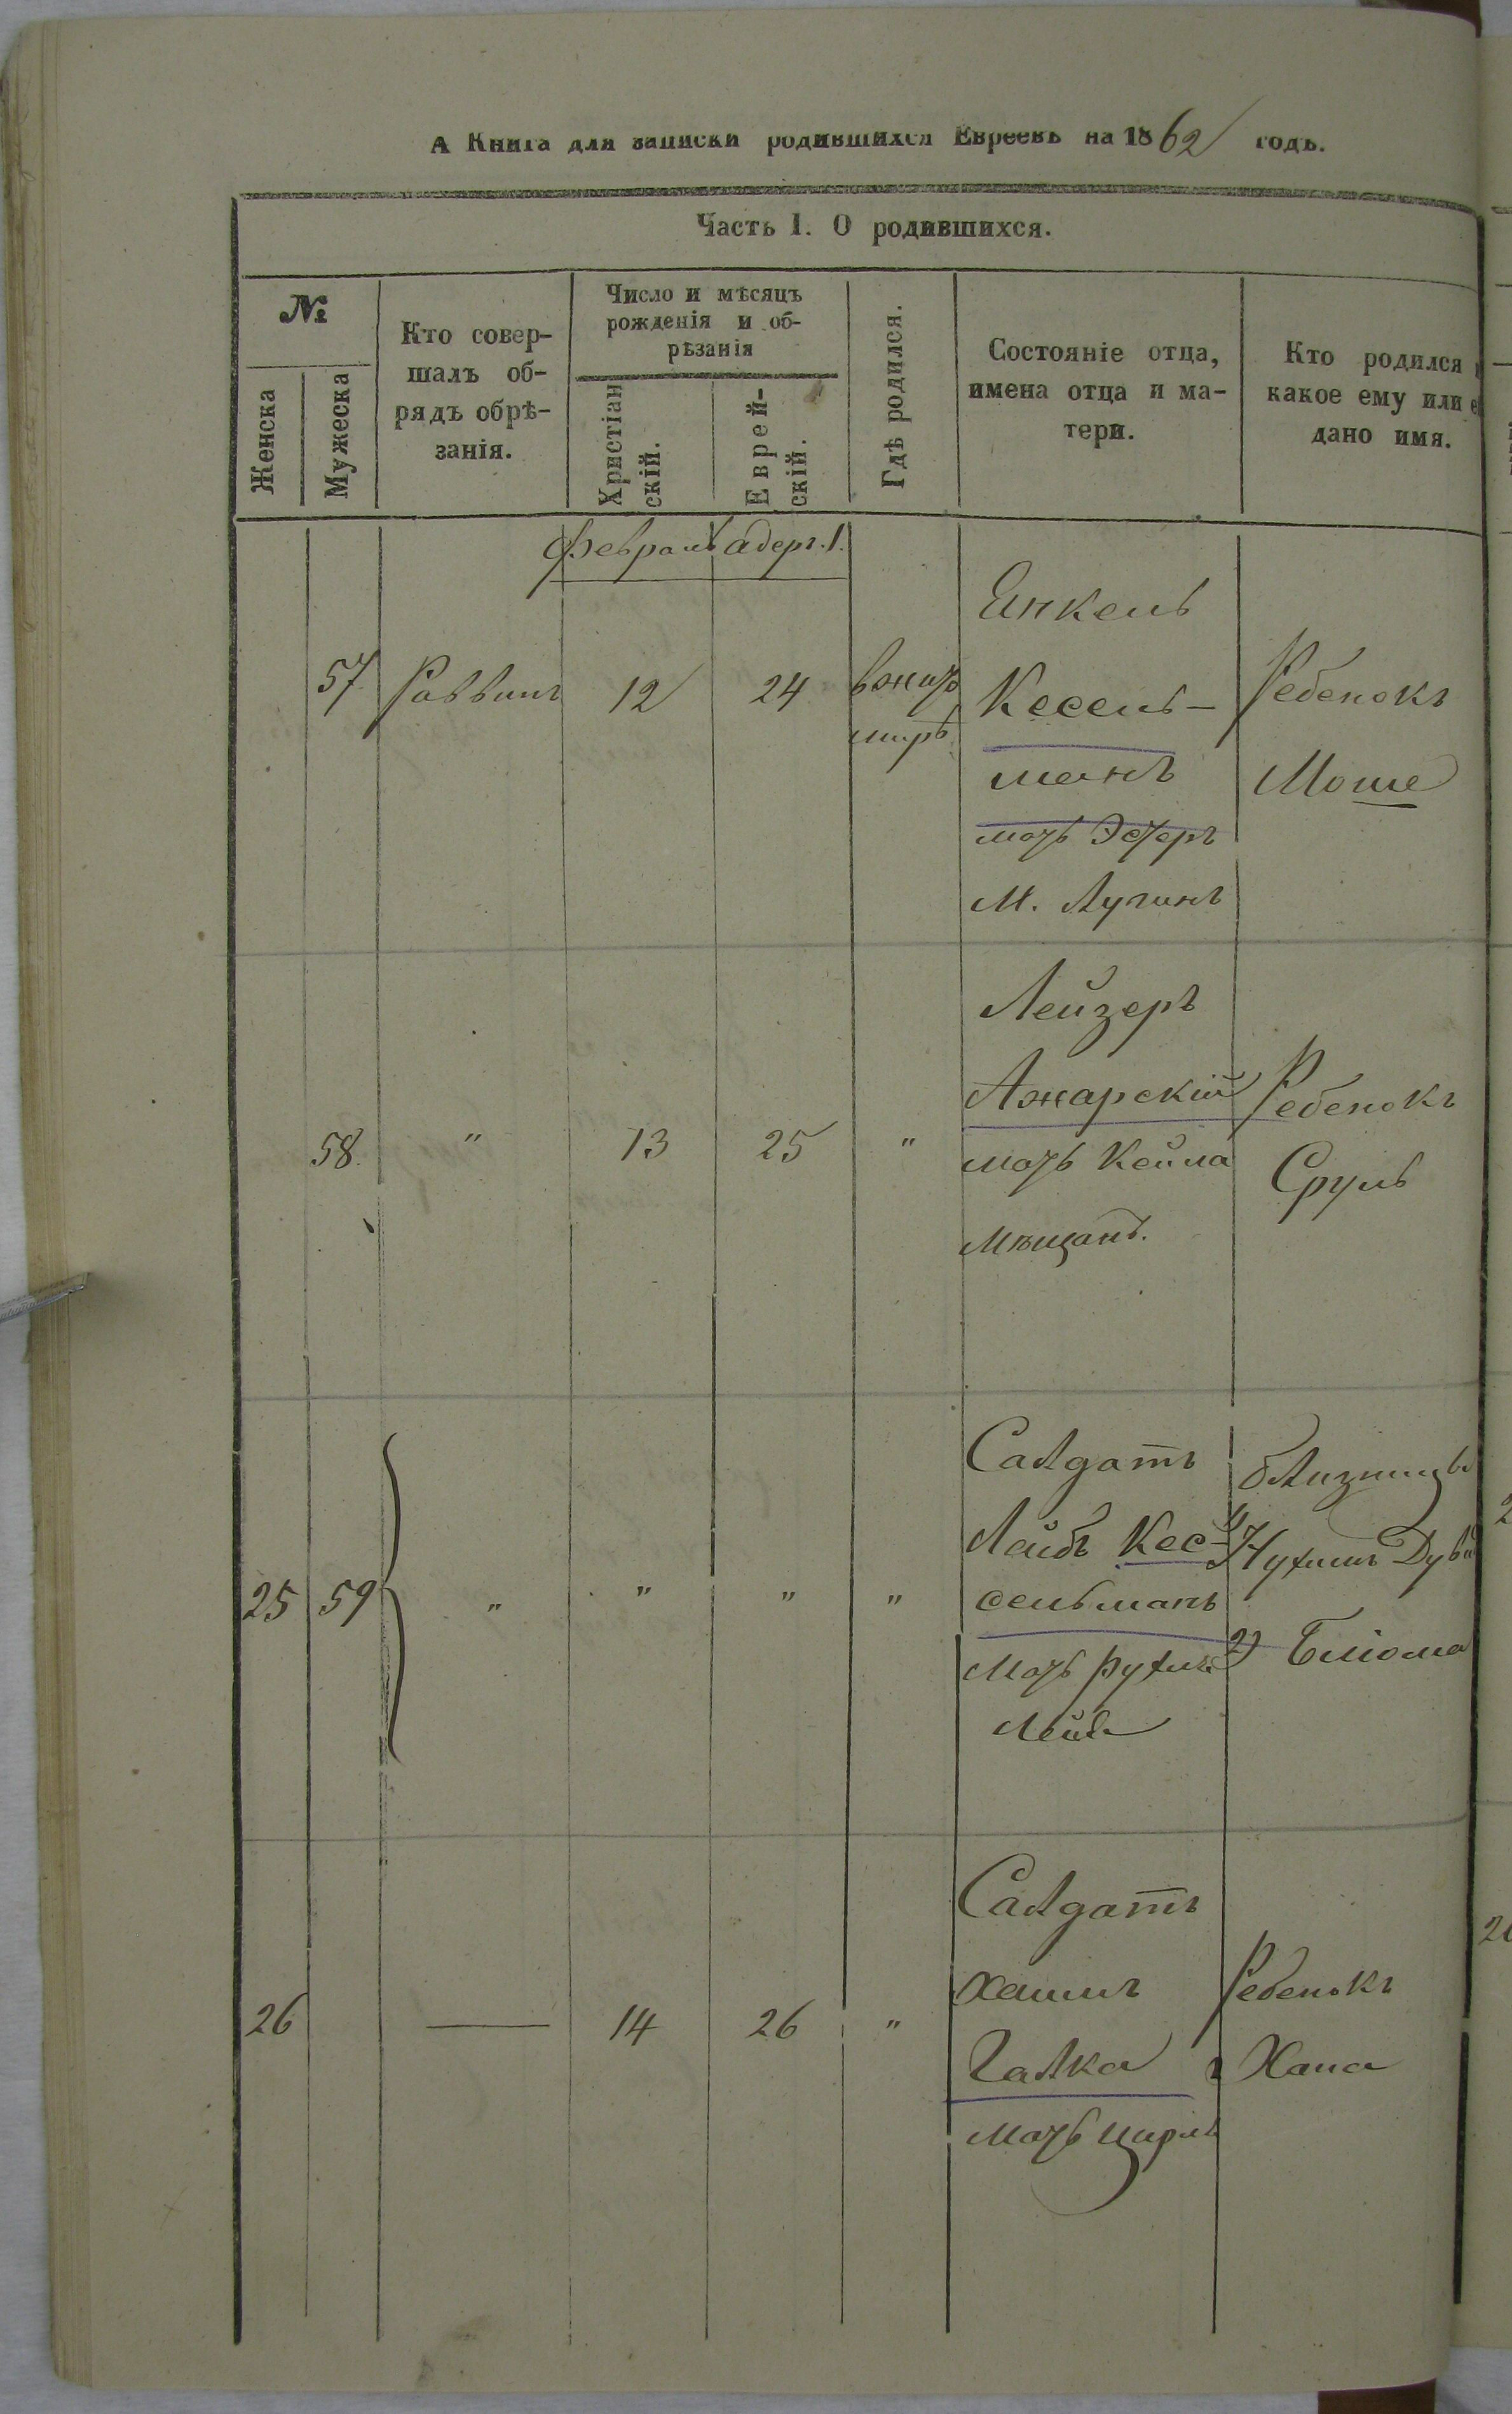 А Книга для записки родившихся Евреевъ на 1862 годъ.
Часть I. О родившихся.
№
Женска
Мужеска
Кто совер-
шалъ об-
рядъ обрѣ-
занія.
Число и мѣсяцъ
рожденія и об-
рѣзанія
Христіан
скій.
Еврей-
скій.
Гдѣ родился.
Состояніе отца,
имена отца и ма-
тери.
Кто родился
какое ему или е
дано имя.
Февраль адеръ.1.
57 Раввинъ 12 24
вжито
миръ
Енкель
Кесель-
манъ
мать Эстеръ
М. Лугинъ
Ребенокъ
Моше
58. " 13 25 "
Лейзеръ
Ажарскій
мать Кейла
мѣщанъ.
Ребенокъ
Сруль
25 59 " " " "
Салдатъ
Лейбъ Кес-
сельманъ
мать Рухль
Лейе
близницы
1)
2) Блюма
26 — 14 26 "
Салдатъ
Хаимъ
Галка
мать Цирль
Ребенокъ
Хана